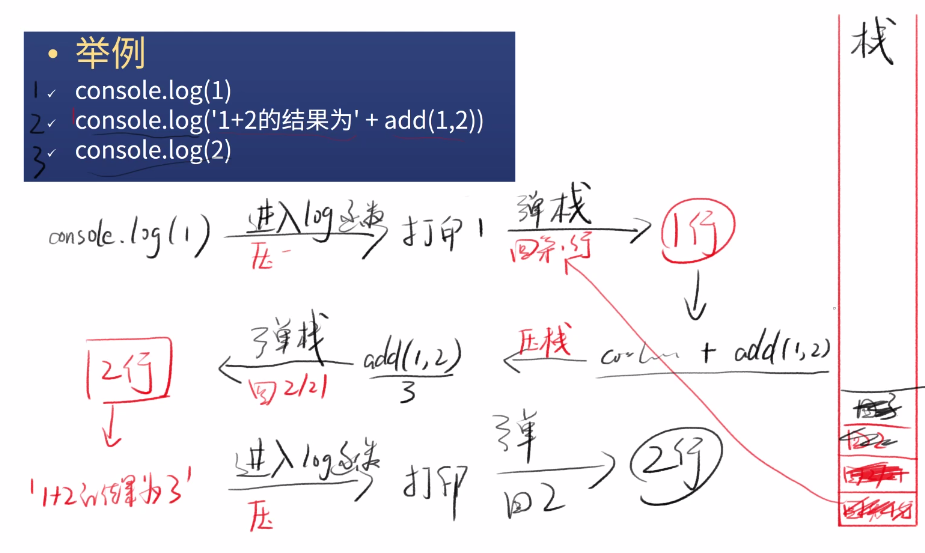 栈
• 举例
1 ✓ console.log(1)
2 ✓ console.log('1+2的结果为' + add(1,2))
3 ✓ console.log(2)
console.log(1) 进入log函数 打印1 弹栈 1行
压一 回第1行
弹栈 add(1,2) 压栈 + add(1,2)
2行 回2行 3
'1+2的结果为3' 进入log函数 打印 弹 2行
压 回2